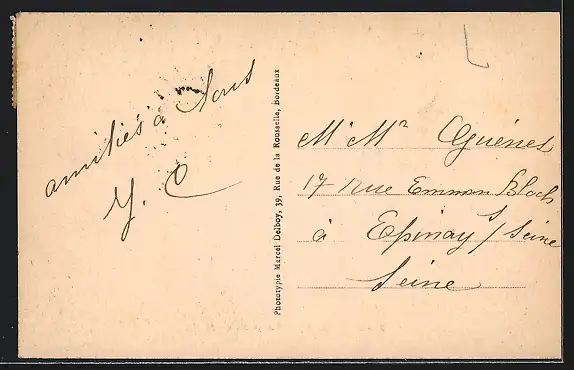 amitiés à tous
Y. C
Phototypie Marcel Delboy, 39, Rue de la Rousselle, Bordeaux
Mr Mme Aguénet
17 rue Emman Bloch
à Epinay s/ Seine
Seine